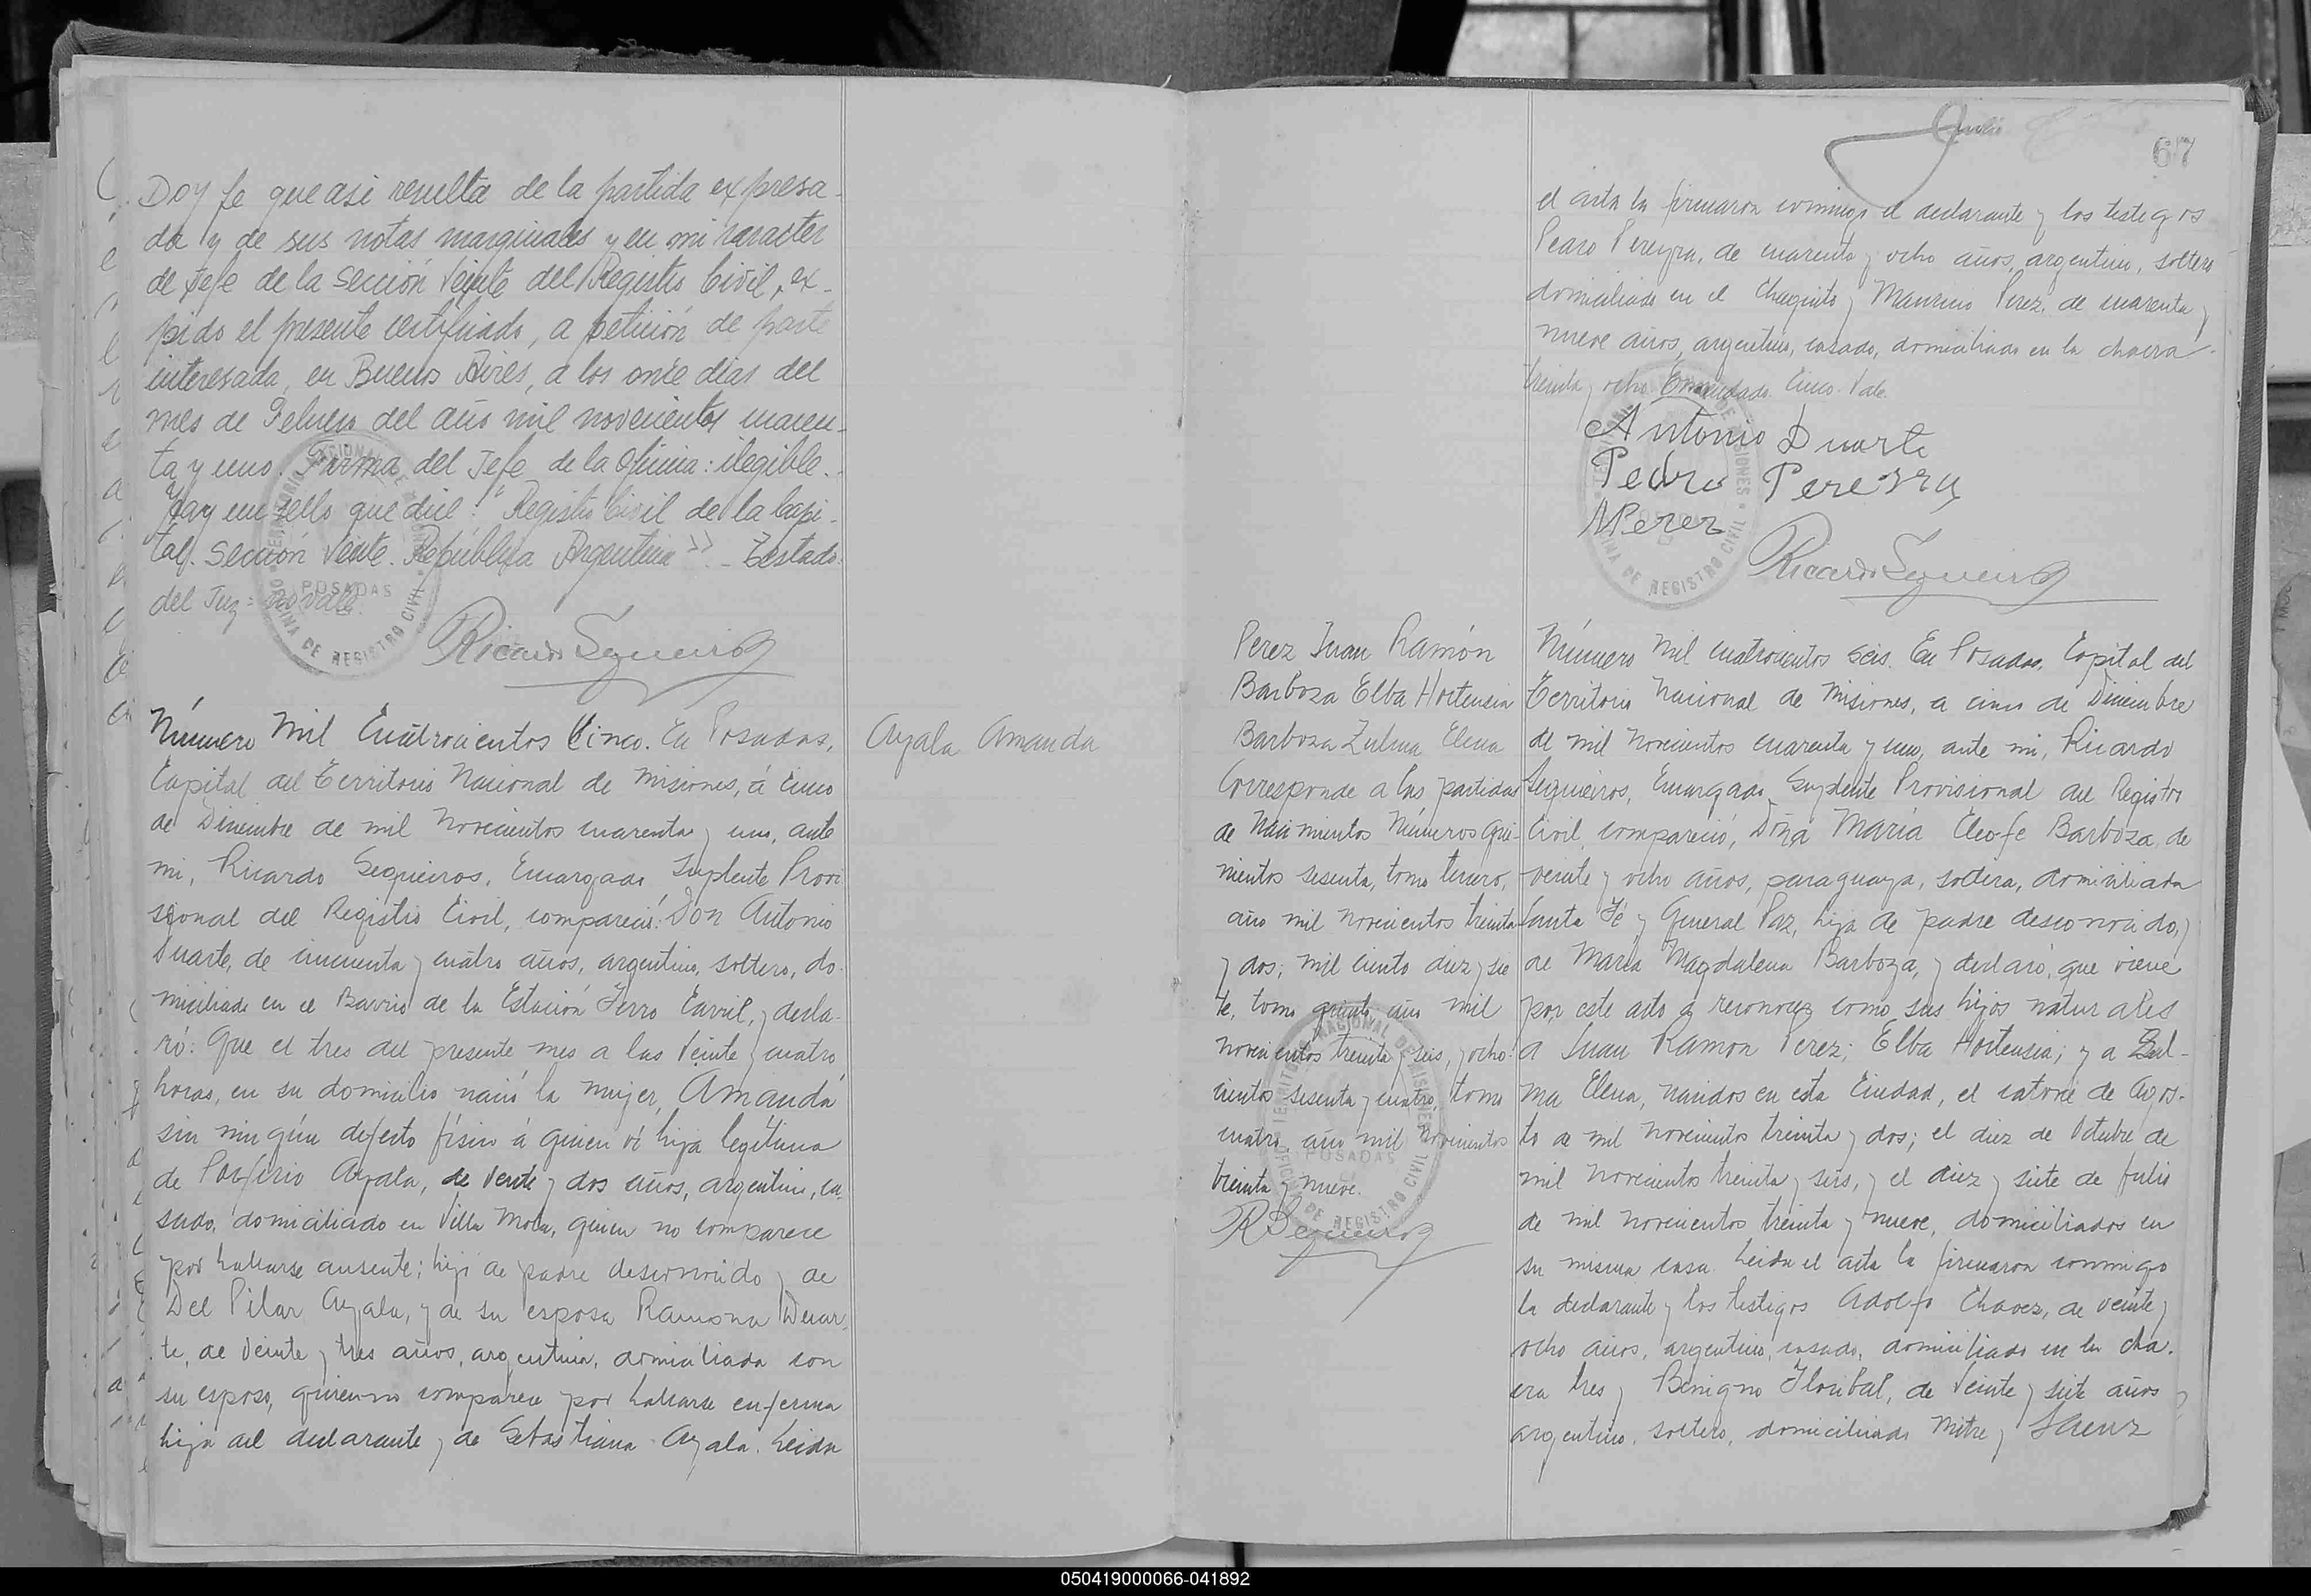 Doy fe que asi resulta de la partida expresa-
da y de sus notas marginales y en mi caracter
de Jefe de la Sección Veinte del Registro Civil, ex-
pido el presente certificado, a petición de parte
interesada, en Buenos Aires, a los once dias del
mes de Febrero del año mil novecientos cuaren-
ta y uno. Firma del Jefe de la Oficina: ilegible.
Hay un sello que dice: "Registro Civil de la Capi-
tal. Sección Veinte. República Argentina" - Testado:
del Juz = no vale.
Ricardo Sequeiros
Número Mil Cuatrocientos Cinco. En Posadas,
Capital del Territorio Nacional de Misiones, á cinco
de Diciembre de mil novecientos cuarenta y uno, ante
mi, Ricardo Sequeiros, Encargado Suplente Provi
sional del Registro Civil, compareció: Don Antonio
Duarte, de cincuenta y cuatro años, argentino, soltero, do-
miciliado en el Barrio de la Estación Ferro Carril, y decla-
ró: Que el tres del presente mes a las veinte y cuatro
horas, en su domicilio nació la mujer, Amanda
sin ningún defecto físico á quien ví hija legítima
de Porfirio Ayala, de veinte y dos años, argentino, ca-
sado, domiciliado en Villa Mola, quien no comparece
por hallarse ausente; hijo de padre desconocido y de
Del Pilar Ayala, y de su esposa Ramona Duar-
te, de veinte y tres años, argentina, domiciliada con
su esposo, quien no comparece por hallarse enferma
hija del declarante y de Sebastiana Ayala. Leida
Ayala Amanda
67
el acta la firmaron conmigo el declarante y los testigos
Pedro Pereyra, de cuarenta y ocho años, argentino, soltero
domiciliado en el Chaquito y Maximo Perez, de cuarenta y
nueve años, argentino, casado, domiciliado en la chacra
treinta y ocho. Enmendado. Cinco. Vale.
Antonio Duarte
Pedro Pereyra
MPerez
Ricardo Sequeiros
Perez Juan Ramón
Barboza Elba Hortensia
Barboza Zulma Elena
Corresponde a las partidas
de Nacimientos Números Qui-
nientos sesenta, tomo tercero,
año mil novecientos treinta
y dos; mil ciento diez y sie
te, tomo quinto, año mil
novecientos treinta y seis, y ocho-
cientos sesenta y cuatro, tomo
cuatro, año mil novecientos
treinta y nueve.
RSequeiros
Número Mil cuatrocientos seis. En Posadas, Capital del
Territorio Nacional de Misiones, a cinco de Diciembre
de mil novecientos cuarenta y uno, ante mi, Ricardo
Sequeiros, Encargado Suplente Provisional del Registro
Civil, compareció, Doña María Cleofe Barboza, de
veinte y ocho años, paraguaya, soltera, domiciliada
Santa Fé y General Paz, hija de padre desconocido, y
de María Magdalena Barboza, y declaró, que viene
por este acto a reconocer como sus hijos naturales
a Juan Ramon Perez; Elba Hortensia; y a Zul-
ma Elena, nacidos en esta Ciudad, el catorce de Agos-
to de mil novecientos treinta y dos; el diez de Octubre de
mil novecientos treinta y seis, y el diez y siete de Julio
de mil novecientos treinta y nueve, domiciliados en
su misma casa. Leida el acta la firmaron conmigo
la declarante y los testigos Adolfo Chavez, de veinte y
ocho años, argentino, casado, domiciliado en la cha-
cra tres y Benigno Floribal, de veinte y siete años
argentino, soltero, domiciliado Mitre y Saenz
050419000066-041892